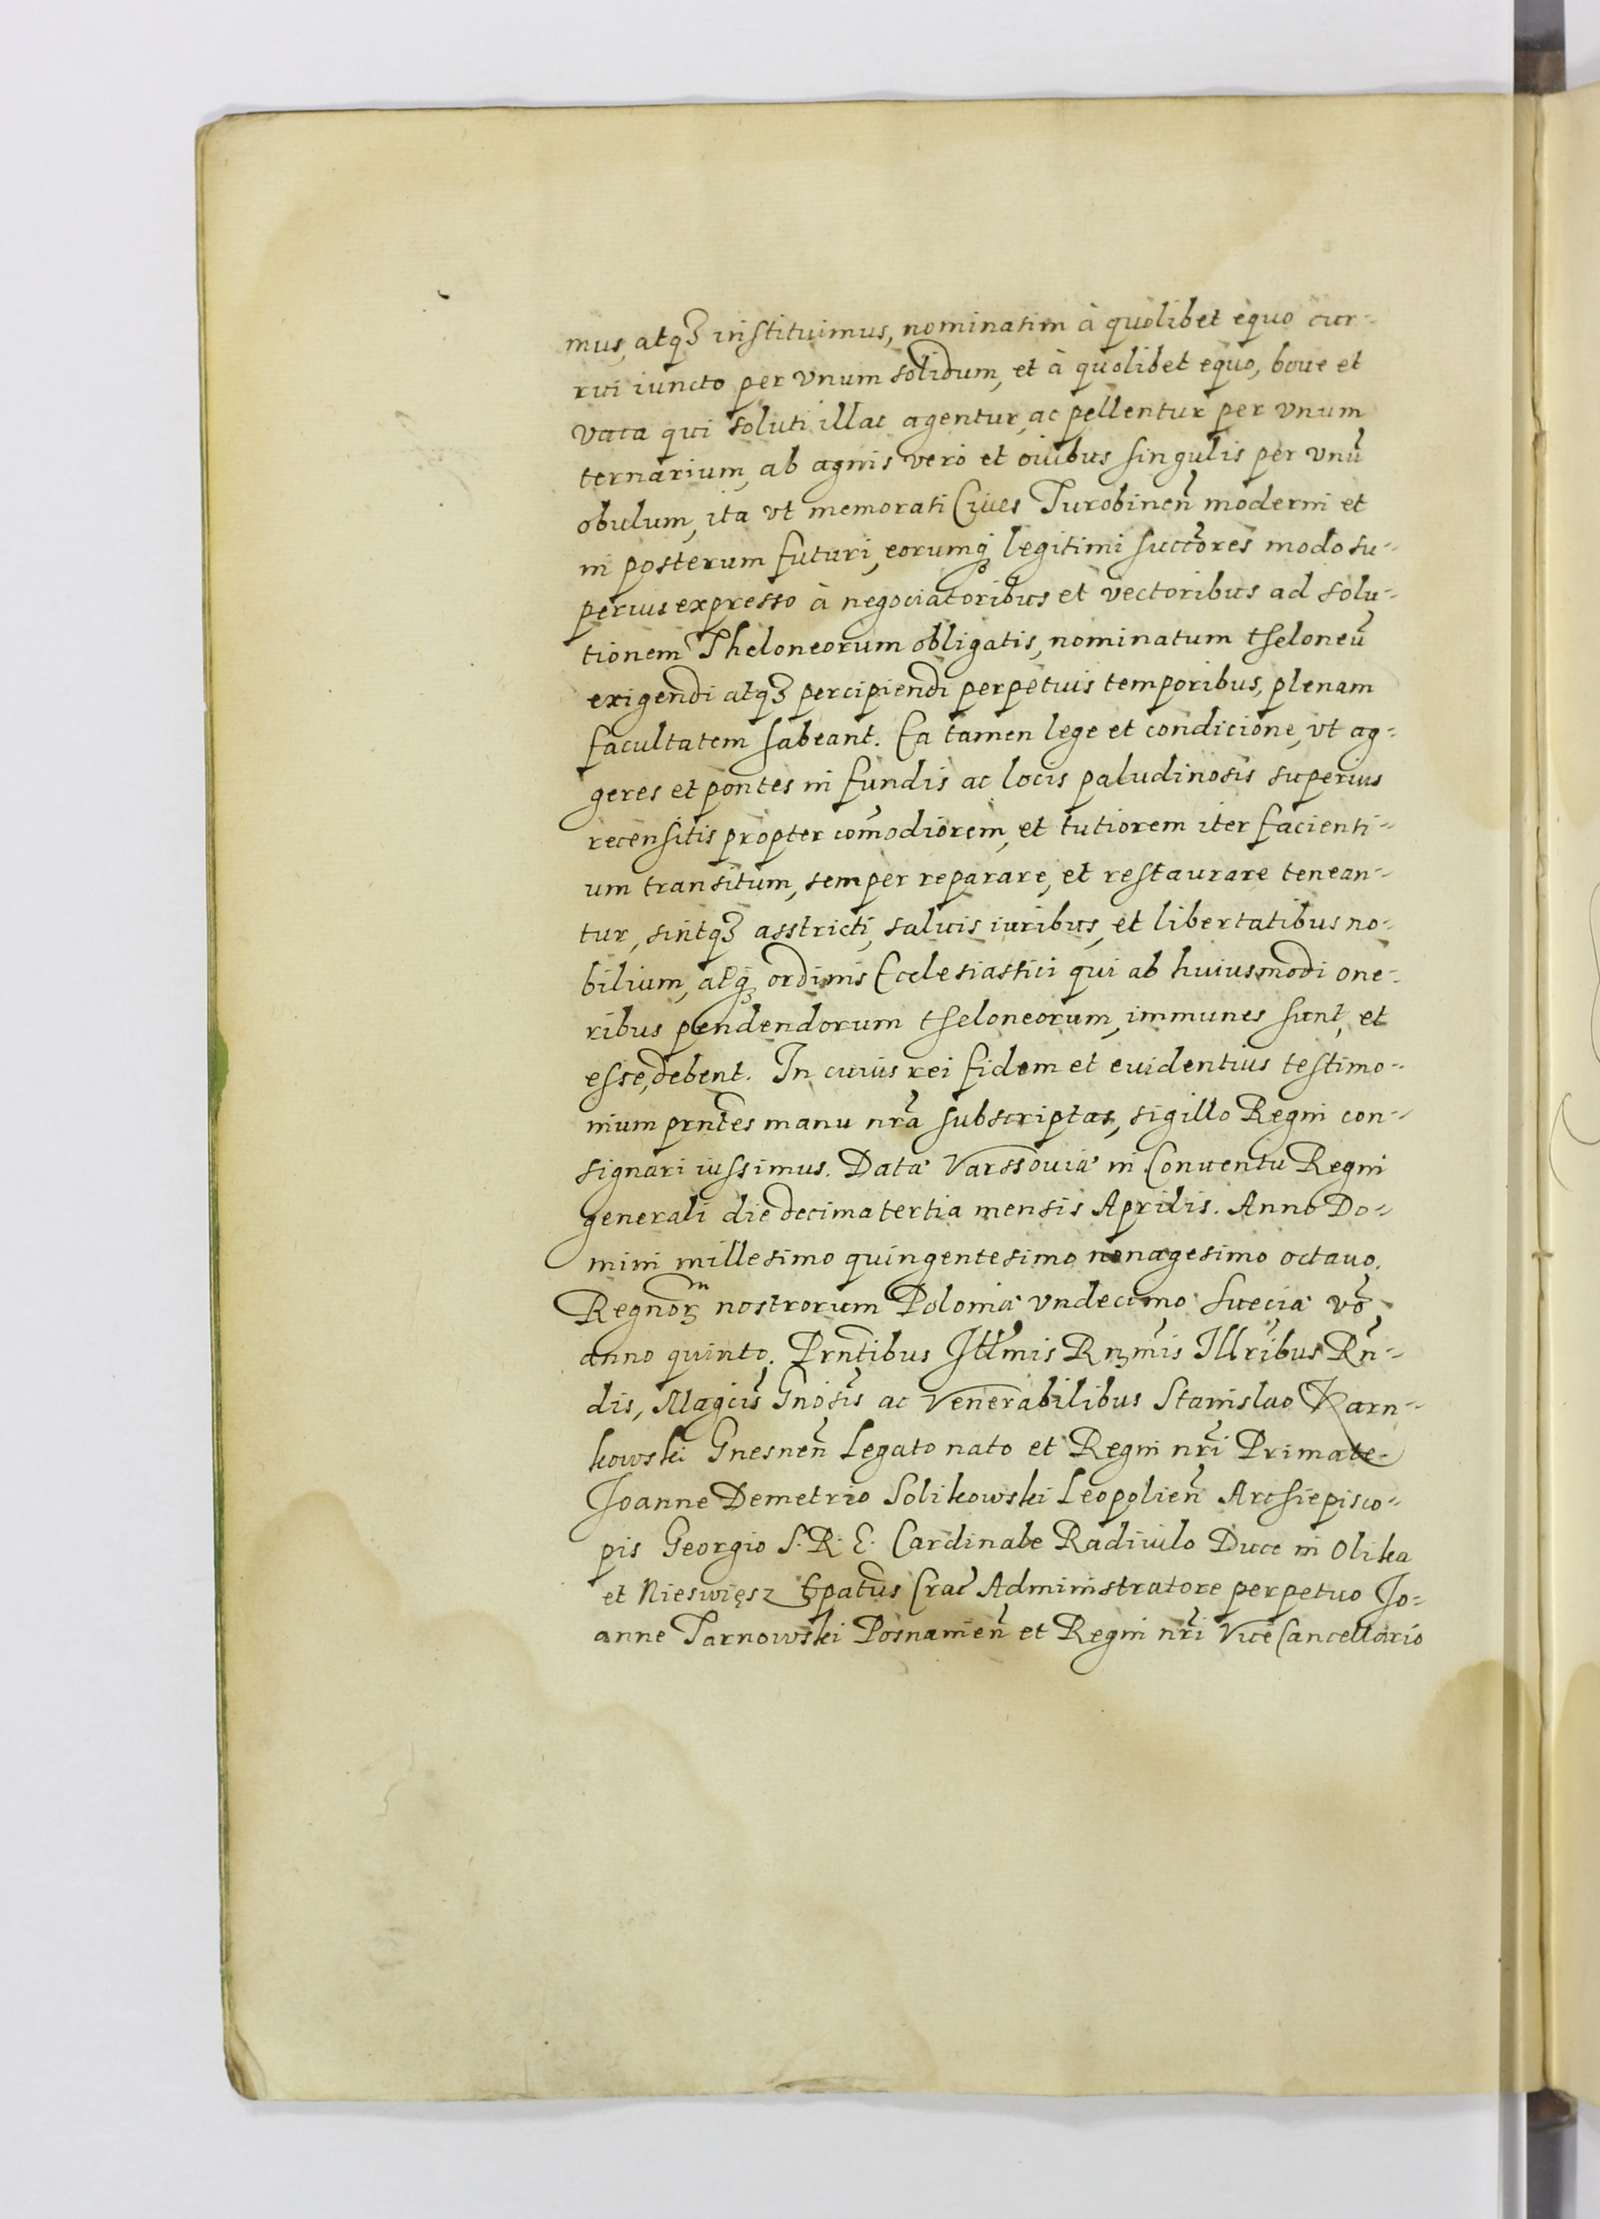 mus, atqꝫ instituimus, nominatim à quolibet equo cur-
rui iuncto per vnum solidum, et à quolibet equo, boue et
vaca qui soluti illac agentur, ac pellentur per vnum
ternarium, ab agnis verò et ouibus singulis per vnũ
obulum, ita vt memorati Ciues Turobineñ moderni et
in posterum futuri, eorumq̨ legitimi succ̃ores modo su-
perius expresso à negociatoribus et vectoribus ad solu-
tionem Theloneorum obligatis, nominatum theloneũ
exigendi atqꝫ percipiendi perpetuis temporibus, plenam
facultatem habeant. Ea tamen lege et condicione, vt ag-
geres et pontes in fundis ac locis paludinosis superius
recensitis propter com̃odiorem, et tutiorem iter facienti-
um transitum, semper reparare, et restaurare tenean-
tur, sintqꝫ asstricti, saluis iuribus, et libertatibus no-
bilium, atq̨ ordinis Ecclesiastici qui ab huiusmodi one-
ribus pendendorum theloneorum, immunes sunt, et
esse, debent. In cuius rei fidem et euidentius testimo-
nium prñtes manu nrã subscriptas, sigillo Regni con-
signari iussimus. Data Varssouiæ in Conuentu Regni
generali die decima tertia mensis Aprilis. Anno Do-
mini millesimo quingentesimo nonagesimo octauo.
Regnorꝫ nostrorum Poloniæ vndecimo Sueciæ võ
anno quinto. Prñtibus Illm̃is Rꝫm̃is Illr̃ibus Rñ-
dis, Magc̃is Gnõsis ac Venerabilibus Stanislao Karn-
kowski Gnesneñ Legato nato et Regni nrĩ Primate.
Joanne Demetrio Solikowski Leopolieñ Archiepisco-
pis Georgio S. R. E. Cardinale Radiuilo Duce in Olika
et Nieswięsz Ep̃atus Crac̃ Administratore perpetuo Jo-
anne Tarnowski Posnanieñ et Regni nrĩ Vice Cancellario